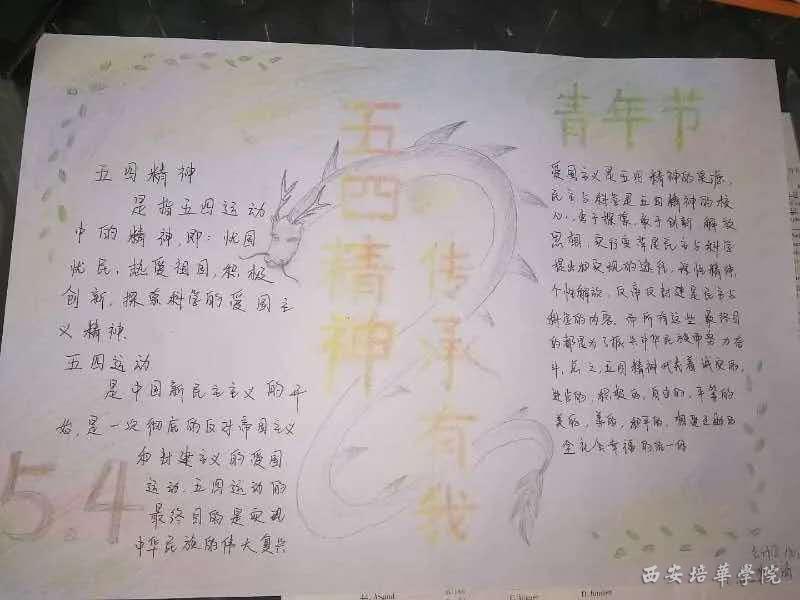 五四精神
传承有我
青年节
五四精神
是指五四运动
中的精神,即:忧国
忧民、热爱祖国,积极
创新、探索科学的爱国主
义精神.
五四运动
是中国新民主主义的开
始,是一次彻底的反对帝国主义
和封建主义的爱国
运动.五四运动的
最终目的是实现
中华民族的伟大复兴
5.4
爱国主义是五四精神的来源,
民主与科学是五四精神的核
心,勇于探索、敢于创新 解放
思想、实行变革是民主与科学
提出和实现的途径,理性精神、
个性解放、反帝反封建是民主与
科学的内容.而所有这些 最终目
的都是为了振兴中华民族而努力奋
斗,总之,五四精神代表着诚实的,
进步的,积极的,自由的,平等的
美的,善的,和平的,相爱互助的
全社会幸福的
西安培華學院